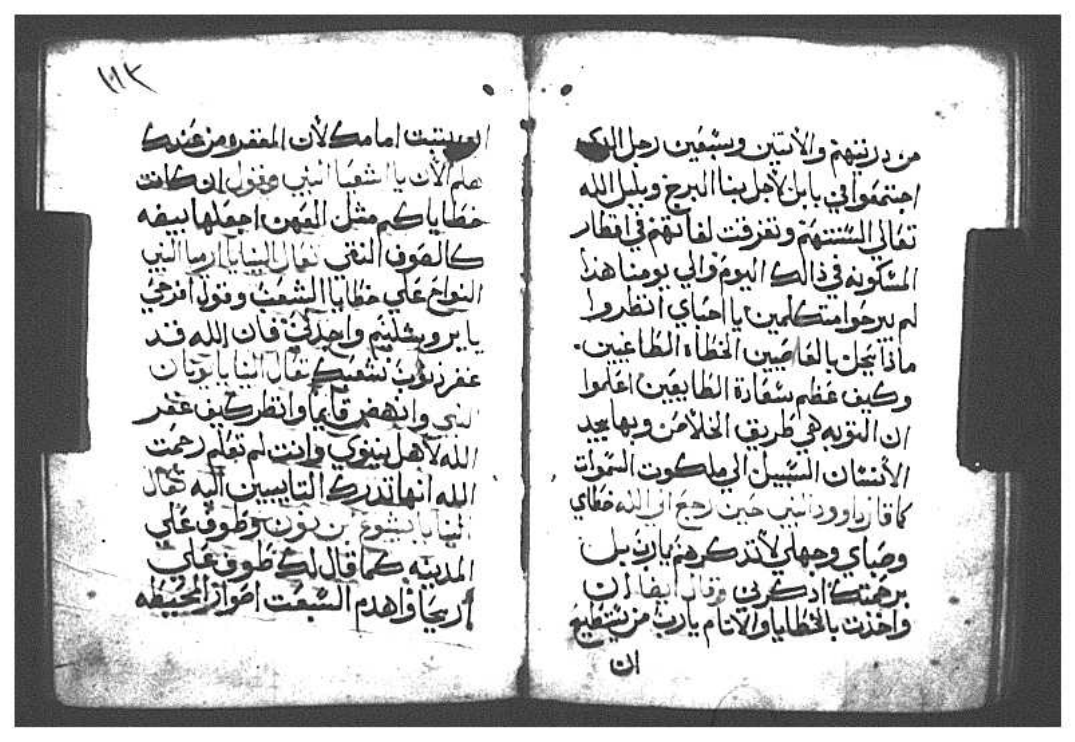 من دريتهم والاتنين وسبعين رجل الذي
اجتمعوا في بابل لاجل بنا البرج وبلبل الله
تعالي السنتهم وتفرقت لغاتهم في اقطار
المسكونه في ذالك اليوم والي يومنا هذا
لم يبرحوا متكلمين يا احباي انظروا
ماذا يحل بالعاصيين الخطاه الطاغيين
وكيف عظم سعادة الطايعين اعلموا
ان التوبه هي طريق الخلاص وبها يجد
الانسان السبيل الي ملكوت السموات
كما قال داوود النبي حين رجع الي الله خطاي
وصباي وجهلي لا تدكرهم يارب بل
برحمتك ادكرني وقال ايضا ان
واخذت بالخطايا والاتام يارب من يستطيع
ان
١١٣
يتبت امامك لان المغفره من عندك
هلم الان يا اشعيا النبي وقول ان كانت
خطاياكم مثل القهن اجعلها بيضه
كالصوف النقي تعال الينا يا ارميا النبي
النواح علي خطايا الشعب وقول افرحي
يا يروشليم فان الله قد
غفر ذنوب شعبك تعال الينا يا يونان
النبي وانهض قايما وانظر كيف غفر
الله لاهل نينوي وانت لم تعلم رحمت
الله انها تدرك التايبين اليه تعال
الينا يا يشوع بن نون وطوف علي
المدينه كما قال لك طوف علي
اريحا واهدم السبعت اصوار المحيطه